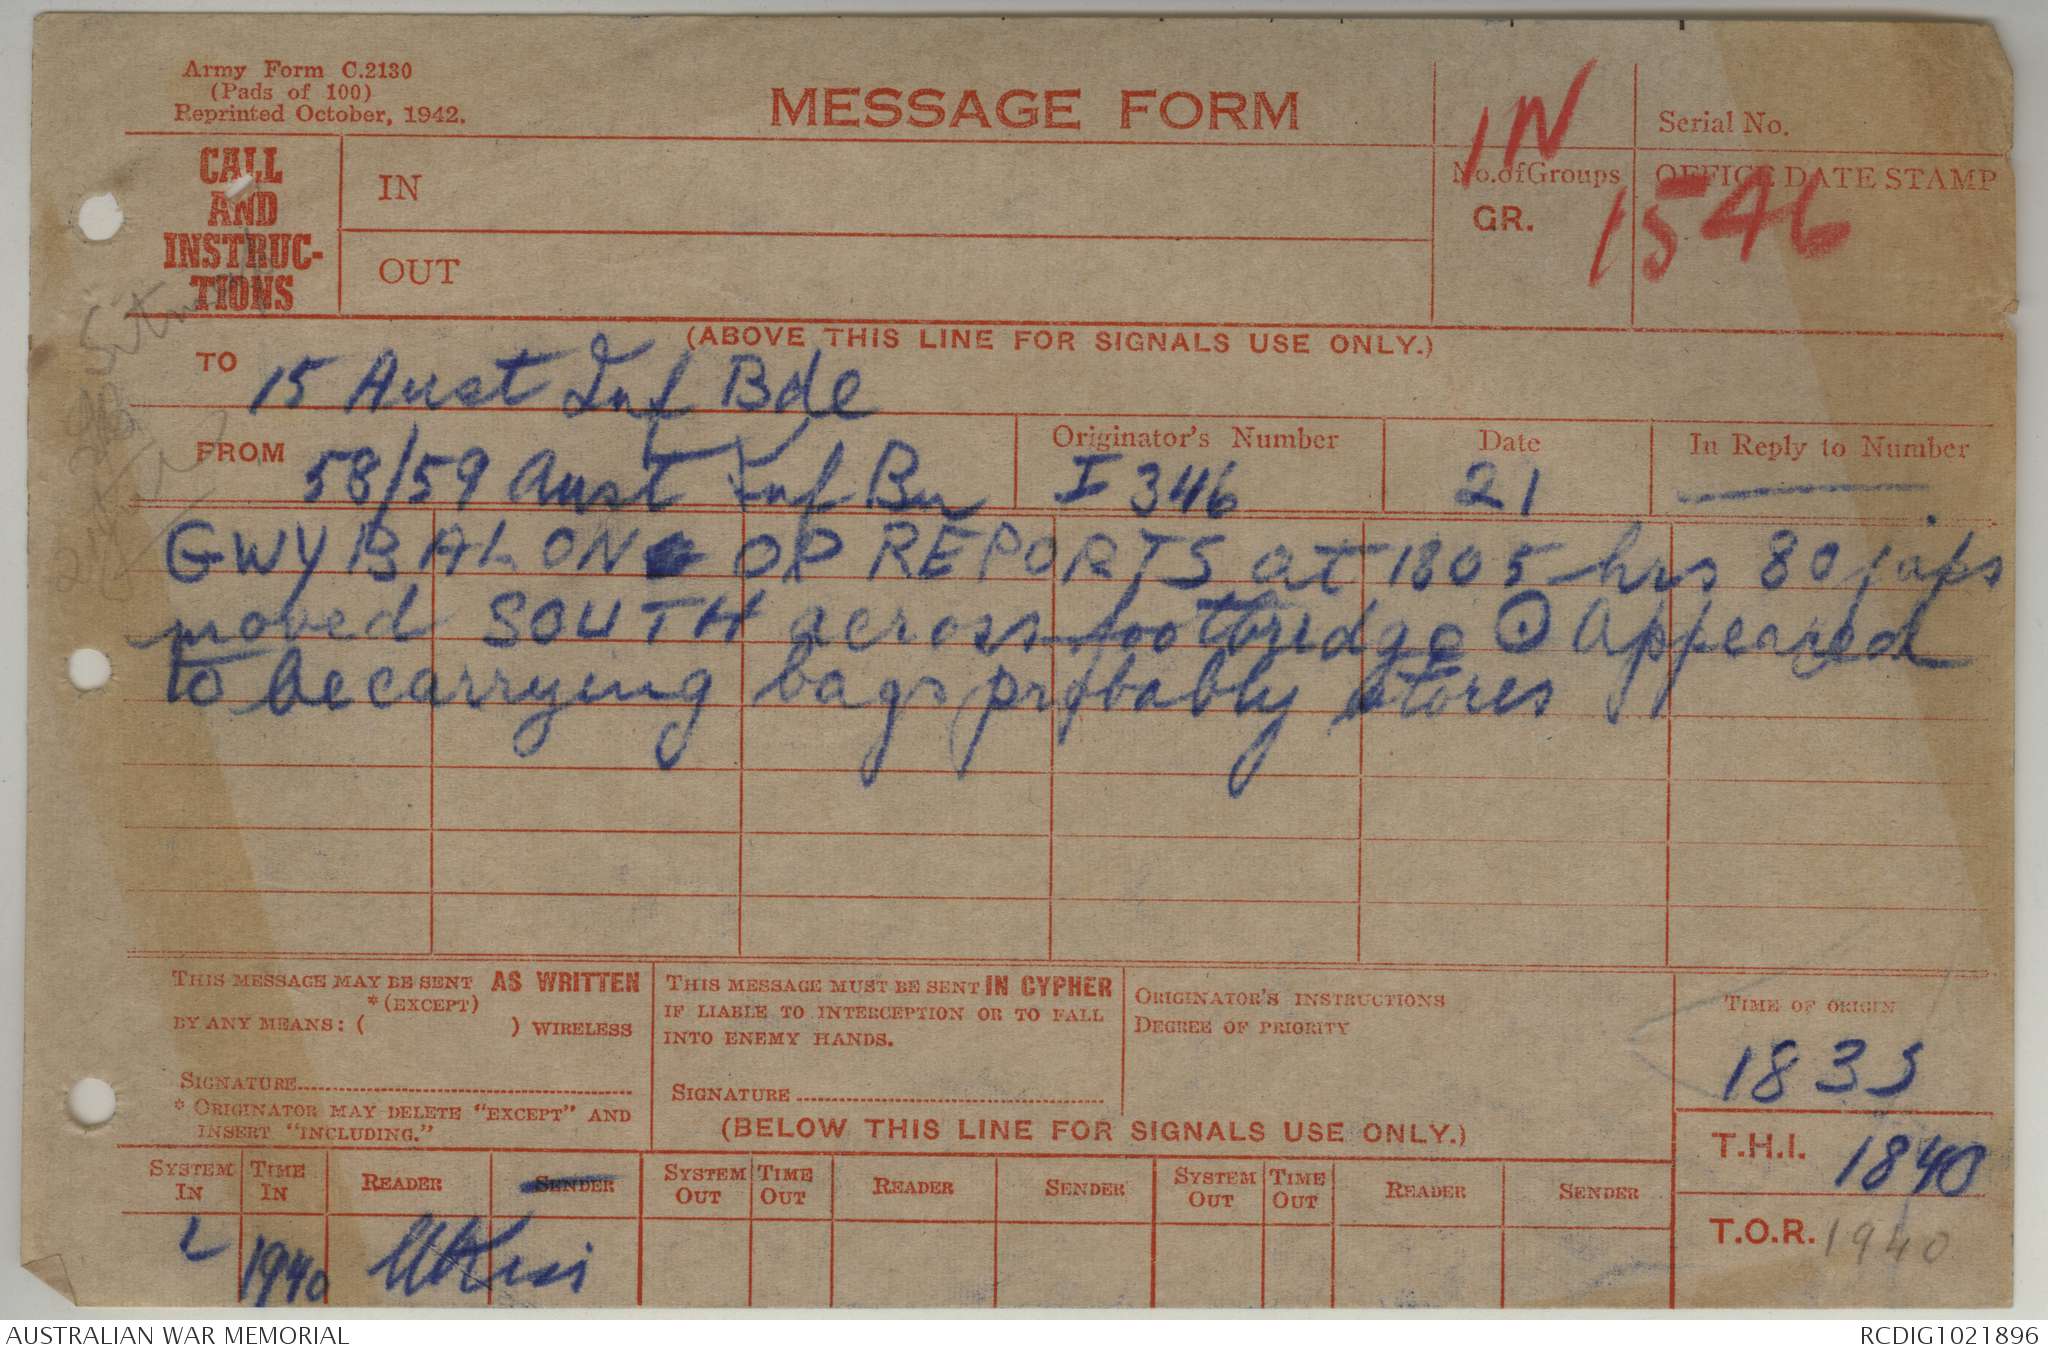 Army Form C.2130
(Pads of 100)
Reprinted October, 1942.
MESSAGE FORM
IN
Serial No.
CALL
AND
INSTRUC-
TIONS
IN
OUT
No. of Groups
GR.
OFFICE DATE STAMP
1546
(ABOVE THIS LINE FOR SIGNALS USE ONLY.)
TO 15 Aust Inf Bde
FROM 58/59 Aust Inf Bn
Originator's Number
I 346
Date
21
In Reply to Number
GWYBALON OP REPORTS at 1805 hrs 80 japs
moved SOUTH across footbridge ⊙ Appeared
to be carrying bags probably stores
THIS MESSAGE MAY BE SENT AS WRITTEN
*(EXCEPT)
BY ANY MEANS: ( ) WIRELESS
SIGNATURE
* ORIGINATOR MAY DELETE "EXCEPT" AND
INSERT "INCLUDING."
THIS MESSAGE MUST BE SENT IN CYPHER
IF LIABLE TO INTERCEPTION OR TO FALL
INTO ENEMY HANDS.
SIGNATURE
ORIGINATOR'S INSTRUCTIONS
DEGREE OF PRIORITY
TIME OF ORIGIN
1835
(BELOW THIS LINE FOR SIGNALS USE ONLY.)
T.H.I. 1840
T.O.R. 1940
SYSTEM IN TIME IN READER SENDER SYSTEM OUT TIME OUT READER SENDER SYSTEM OUT TIME OUT READER SENDER
L 1940
AUSTRALIAN WAR MEMORIAL
RCDIG1021896